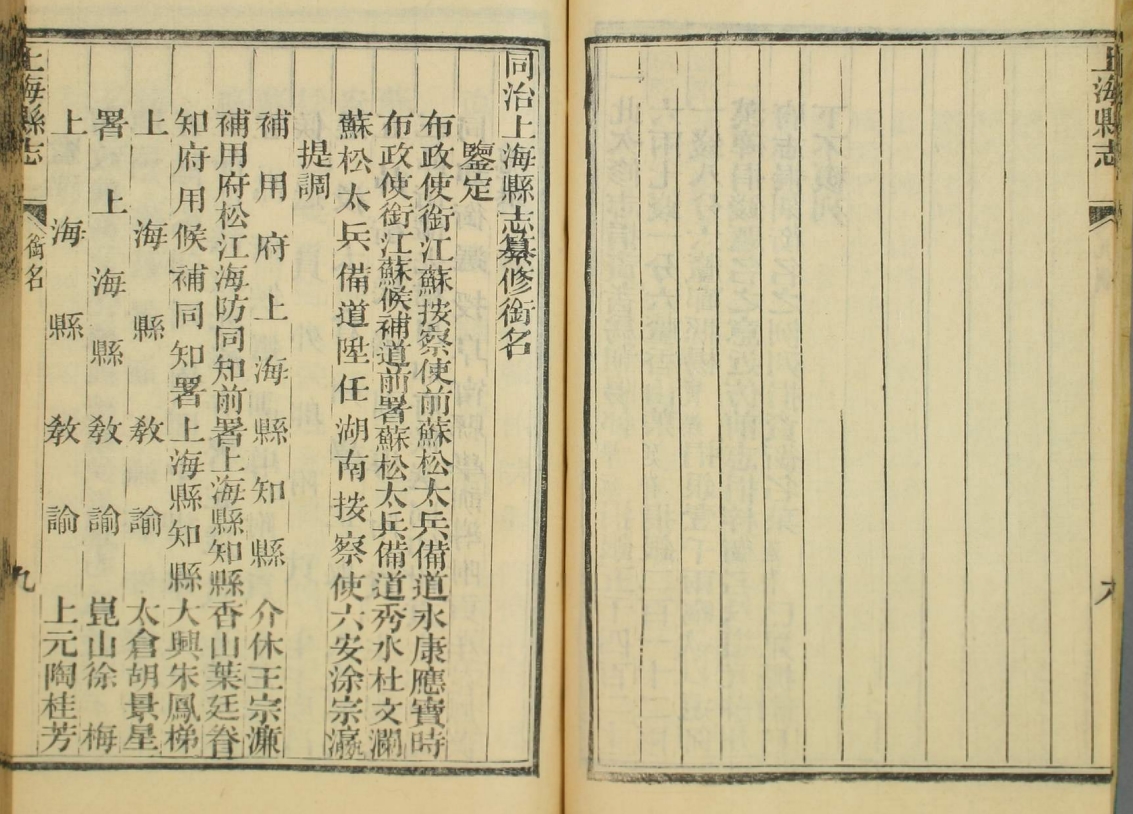 上海縣志
八
同治上海縣志纂修銜名
鑒定
布政使銜江蘇按察使前蘇松太兵備道永康應寶時
布政使銜江蘇候補道前署蘇松太兵備道秀水杜文瀾
蘇松太兵備道陞任湖南按察使六安涂宗瀛
提調
補用府上海縣知縣介休王宗濂
補用府松江海防同知前署上海縣知縣香山葉廷眷
知府用候補同知署上海縣知縣大興朱鳳梯
上海縣教諭太倉胡景星
署上海縣教諭崑山徐梅
上海縣教諭上元陶桂芳
上海縣志
銜名
九